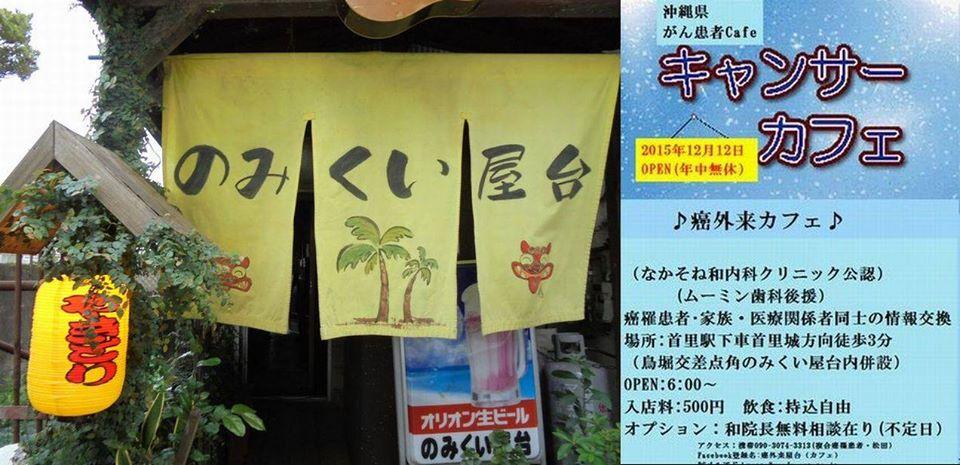 のみくい屋台
やきとり
オリオン生ビール
のみくい屋台
沖縄県
がん患者Cafe
キャンサー
カフェ
2015年12月12日
OPEN(年中無休)
♪癌外来カフェ♪
(なかそね和内科クリニック公認)
(ムーミン歯科後援)
癌罹患者・家族・医療関係者同士の情報交換
場所:首里駅下車首里城方向徒歩3分
(鳥堀交差点角のみくい屋台内併設)
OPEN:6:00～
入店料:500円 飲食:持込自由
オプション:和院長無料相談在り(不定日)
アクセス:携帯090-3074-3313(複合癌罹患者・松田)
Facebook登録名:癌外来屋台(カフェ)